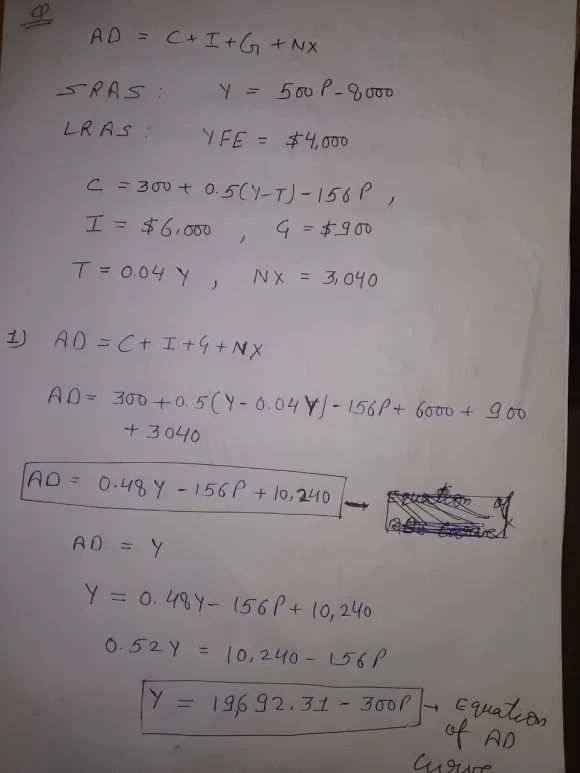 Q
AD = C+I+G+NX
SRAS: Y = 500P-8000
LRAS: YFE = $4,000
C = 300+ 0.5(Y-T)-156P,
I = $6,000 , G = $900
T = 0.04 Y , NX = 3,040
1) AD = C+ I+G+NX
AD = 300+0.5(Y-0.04Y)-156P+ 6000 + 900
+ 3040
AD = 0.48Y - 156P + 10,240 →
AD = Y
Y = 0.48Y- 156P+ 10,240
0.52Y = 10,240- 156P
Y = 19,692.31 - 300P → Equation
of AD
curve